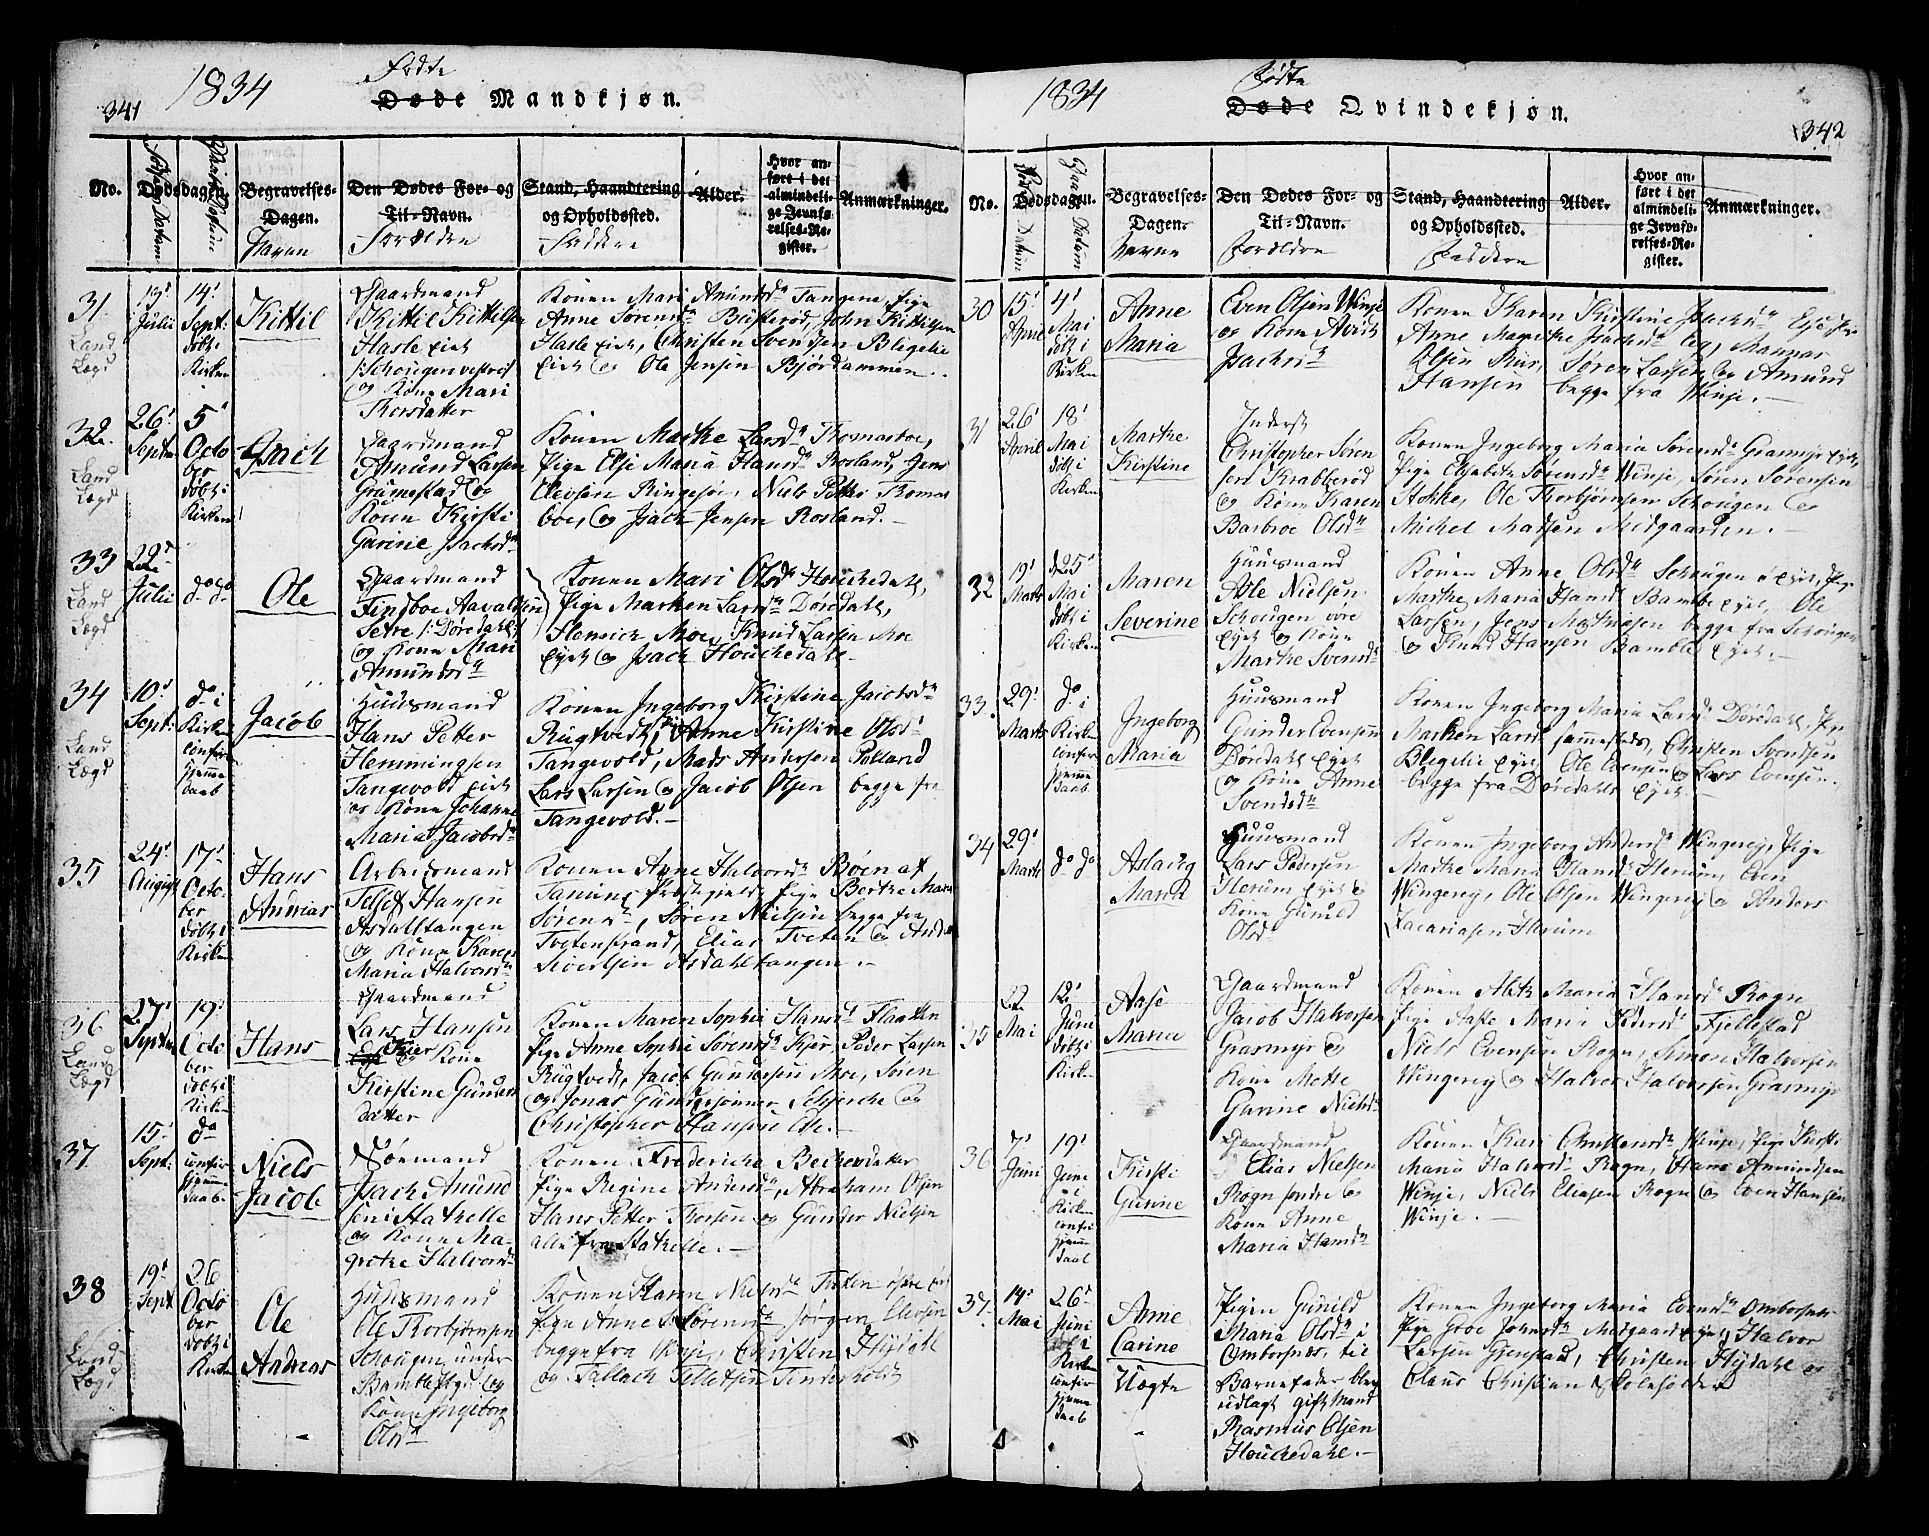 341
1834
Fødte
Døde Mandkjøn.
No.
Dødsdagen.
Fødsels Datum
Daabs Datum
Begravelses-
Dagen.
Navn
Den Dødes For- og
Til-Navn.
Forældre
Stand, Haandtering
og Opholdssted.
Faddere
Alder.
Hvor an-
ført i det
almindeli-
ge Jevnfø-
relses-Re-
gister.
Anmærkninger.
31
Land
Lægd
19'
Julii
14'
Sept:
döbt i
Kirken
Kittil
Gaardmand
Kittil Kittelsen
Hasle eiet
Schougen vestre
og Kone Mari
Thorsdatter
Konen Mari Amundsdr Tangene, Pige
Anne Sørensdr Busterød, John Kittilsen
Hasle eiet, Christen Svendsen Blegelie
eiet og Ole Jensen Björdammen.
32.
Land
Lægd
26'
Septbr
5'
Octo
ber
döbt i
Kirken
Isach
Gaardmand
Amund Larsen
Grumestad og
Kone Kirsti
Gurine Isachsdr
Konen Marthe Larsdr Thomasboe,
Pige Else Maria Hansdr Rosland, Jens
Olevsen Ringesjø, Niels Petter Thomas
boe, og Isach Jensen Rosland.
33
Land
Lægd
22de
Julii
do do
Ole
Gaardmand
Findboe Aavaldsen
Setre /: Døredahl :/
og Kone Mari
Amundsdr
Konen Mari Olsdr Houchedahl,
Pige Marken Larsdr Døredahl,
Hemmich Moe, Knud Larsen Moe
eyet og Isach Houchedahl.
34
Land
Lægd
10'
Sept:
do i
Kirken
confir
hjemme
daab
Jacob
Huusmand
Hans Petter
Hemmingsen
Tangevold eiet
og Kone Johanne
Maria Jacobsdr
Konen Ingeborg Kirstine Jacobsdr
Rugtvedt, Pige Anne Kirstine Olsdr
Tangevold, Mads Andersen Valland
Lars Larsen og Jacob Olsen begge fra
Tangevold.
35
24'
August
17'
Octo-
ber
döbt i
Kirken
Hans
Andreas
Arbeidsmand
Tellef Hansen
Asdaltangen
og Kone Karen
Maria Halvorsdr
Konen Anne Halvorsdr Böen af
Sannings Præstegjeld, Pige Berthe Maria
Sörensdr, Sören Nielsen begge fra
Tvetenstrand, Elias Tveten og Anders
Sivertsen Asdahltangen.
36
Land
Lægd
27'
Septbr
19'
Octo
ber
döbt i
Kirken
Hans
Gaardmand
Lars Hansen
Kjær og Kone
Kirstine Gunders
datter
Konen Maren Sophie Hansdr Flaatten
Pige Anne Sophie Sørensdr Kjær, Peder Larsen
Rugtvedt, Jacob Gundersen Moe, Sören
og Jonas Gundersønner Schjerche og
Christopher Hansen Ede.
37
15'
Sept:
do
confir
hjemme
daab
Niels
Jacob
Søemand
Isach Amund
sen Stathelle
og Kone Ma-
grethe Halvorsdr
Konen Frederiche Bechersdatter
Pige Regine Andersdr, Abraham Olsen
Hans Petter Thorsen og Gunder Nielsen
alle fra Stathelle.
38
Land
Lægd
19'
Sept
26
Octo
ber
döbt i
Kirken
Ole
Andreas
Huusmand
Ole Thorbjørnsen
Schougen under
Bamble Præstegd og
Kone Ingeborg
Olsdr
Konen Karen Nielsdr Tveten østre eiet
Pige Anne Sørensdr, Jørgen Olevsen
begge fra Vinje, Christen Hydahl
og Tallach Tellefsen Tinderholdt
1834
Fødte
Døde Qvindekjøn.
342
No.
Dødsdagen.
Fødsels Datum
Daabs Datum
Begravelses-
Dagen.
Navne
Den Dødes For- og
Til-Navn.
Forældre
Stand, Haandtering
og Opholdssted.
Faddere
Alder.
Hvor an-
ført i det
almindeli-
ge Jevnfø-
relses-Re-
gister.
Anmærkninger.
30
15'
April
4'
Mai
döbt i
Kirken
Anne
Maria
Even Olsen Winje
og Kone
Isachsdr
Konen Karen Kirstine Isachsdr
Anne Magrethe Isachsdr
Olsen Riis, Søren Larsen og Amund
Hansen begge fra Winje.
31
26'
April
18'
Mai
döbt i
Kirken
Marthe
Kirstine
Inderst
Christopher Søren
sen Krabberød
og Kone Karen
Barbroe Olsdr
Konen Ingeborg Maria Sørensdr Grasmyr eyet,
Pige Elisabeth Sørensdr Winje, Søren Sørensen
Stokke, Ole Thorbjørnsen Schougen og
Michel Madsen Midgaarden.
32
19'
Marts
d 25'
Mai
döbt i
Kirken
Maren
Severine
Huusmand
Ole Nielsen
Schougen øvre
eyet og Kone
Marthe Svensdr
Konen Anne Olsdr Schougen eyet, Pige
Marthe Maria Hansdr Bamble eyet, Ole
Larsen, Jens Mathiesen begge fra Schougen
og Knud Hansen Bamble eyet.
33.
29'
Marts
do i
Kirken
confir
hjemme
daab
Ingeborg
Maria
Huusmand
Gunder Evensen
Døredahl eyet
og Kone Anne
Svendsdr
Konen Ingeborg Maria Larsdr Døredahl, Pige
Marken Larsdr sammesteds, Christen Svendsen
Blegelie eyet, Ole Evensen og Lars Evensen
begge fra Døredahls eyet.
34
29'
Marts
do do
Aslaug
Maria
Huusmand
Lars Pedersen
Herum eyet og
Kone Gunild
Olsdr
Konen Ingeborg Andersdr Wingerej, Pige
Marthe Maria Hansdr Herum, Even
Wingerej, Ole Olsen Wingerej og Anders
Zacariasen Herum
35
22
Mai
12'
Junii
döbt i
Kirken
Aase
Maria
Gaardmand
Jacob Halvorsen
Grasmyr og
Kone Mette
Gurine Nielsdr
Konen Maria Hansdr Rogn
Pige Aaste Maria Pedersdr Fjellestad
Niels Evensen Rogn, Simon Halvorsen
Wingerej og Halvor Halvorsen Grasmyr
36
7'
Juni
19'
Juni
i
Kirken
confir
hjemme
daab
Kirsti
Gurine
Gaardmand
Elias Nielsen
Rogn søndre og
Kone Anne
Maria Hansdr
Konen Kari Christensdr Winje, Pige Kirsti
Maria Halvorsdr Rogn, Hans Amundsen
Winje, Niels Eliasen Rogn og Even Hansen
Winje.
37.
14'
Mai
26'
Juni
döbt i
Kirken
confir
hjemme
daab
Anne
Carine
Uægte
Pigen Gunild
Maria Olsdr i
Ombosnæs, til
Barnefader blev
udlagt gift Mand
Rasmus Olsen
Houchedahl.
Konen Ingeborg Maria Evensdr Ombosnæs
Pige Groe Johnsdr Midgaard eyet, Halvor
Larsen Gjerstad, Christen Hydahl og
Claus Christian Skoleholder